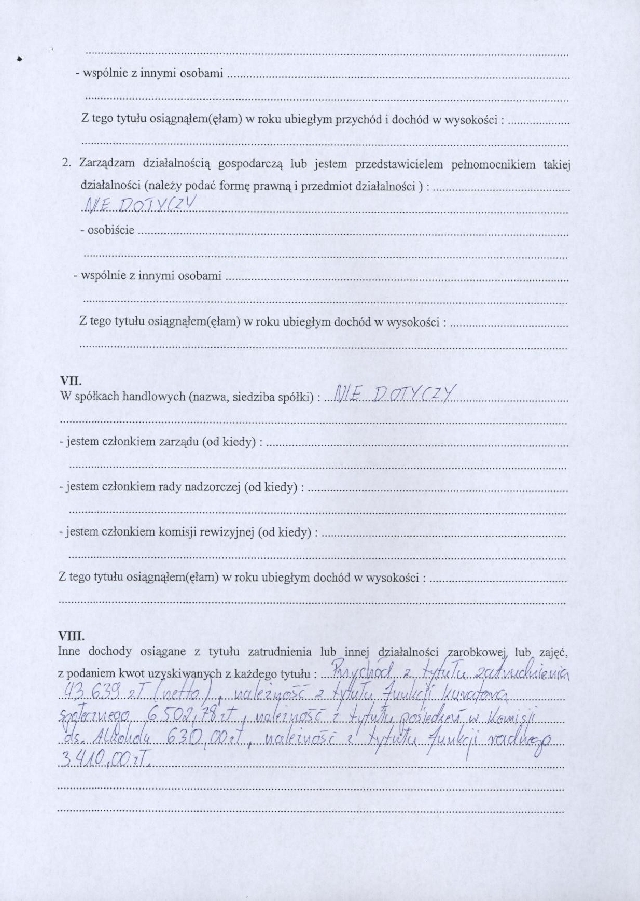 - wspólnie z innymi osobami
Z tego tytułu osiągnąłem(ęłam) w roku ubiegłym przychód i dochód w wysokości :
2. Zarządzam działalnością gospodarczą lub jestem przedstawicielem pełnomocnikiem takiej
działalności (należy podać formę prawną i przedmiot działalności ) :
NIE DOTYCZY
- osobiście
- wspólnie z innymi osobami
Z tego tytułu osiągnąłem(ęłam) w roku ubiegłym dochód w wysokości :
VII.
W spółkach handlowych (nazwa, siedziba spółki) : NIE DOTYCZY
- jestem członkiem zarządu (od kiedy) :
- jestem członkiem rady nadzorczej (od kiedy) :
- jestem członkiem komisji rewizyjnej (od kiedy) :
Z tego tytułu osiągnąłem(ęłam) w roku ubiegłym dochód w wysokości :
VIII.
Inne dochody osiągane z tytułu zatrudnienia lub innej działalności zarobkowej lub zajęć,
z podaniem kwot uzyskiwanych z każdego tytułu : Przychód z tytułu zatrudnienia
43 639 zł (netto), należność z tytułu funkcji kuratora
społecznego 6 502,78 zł, należność z tytułu posiedzeń w Komisji
ds. Alkoholu 630,00 zł, należność z tytułu funkcji radnego
3.410,00 zł.